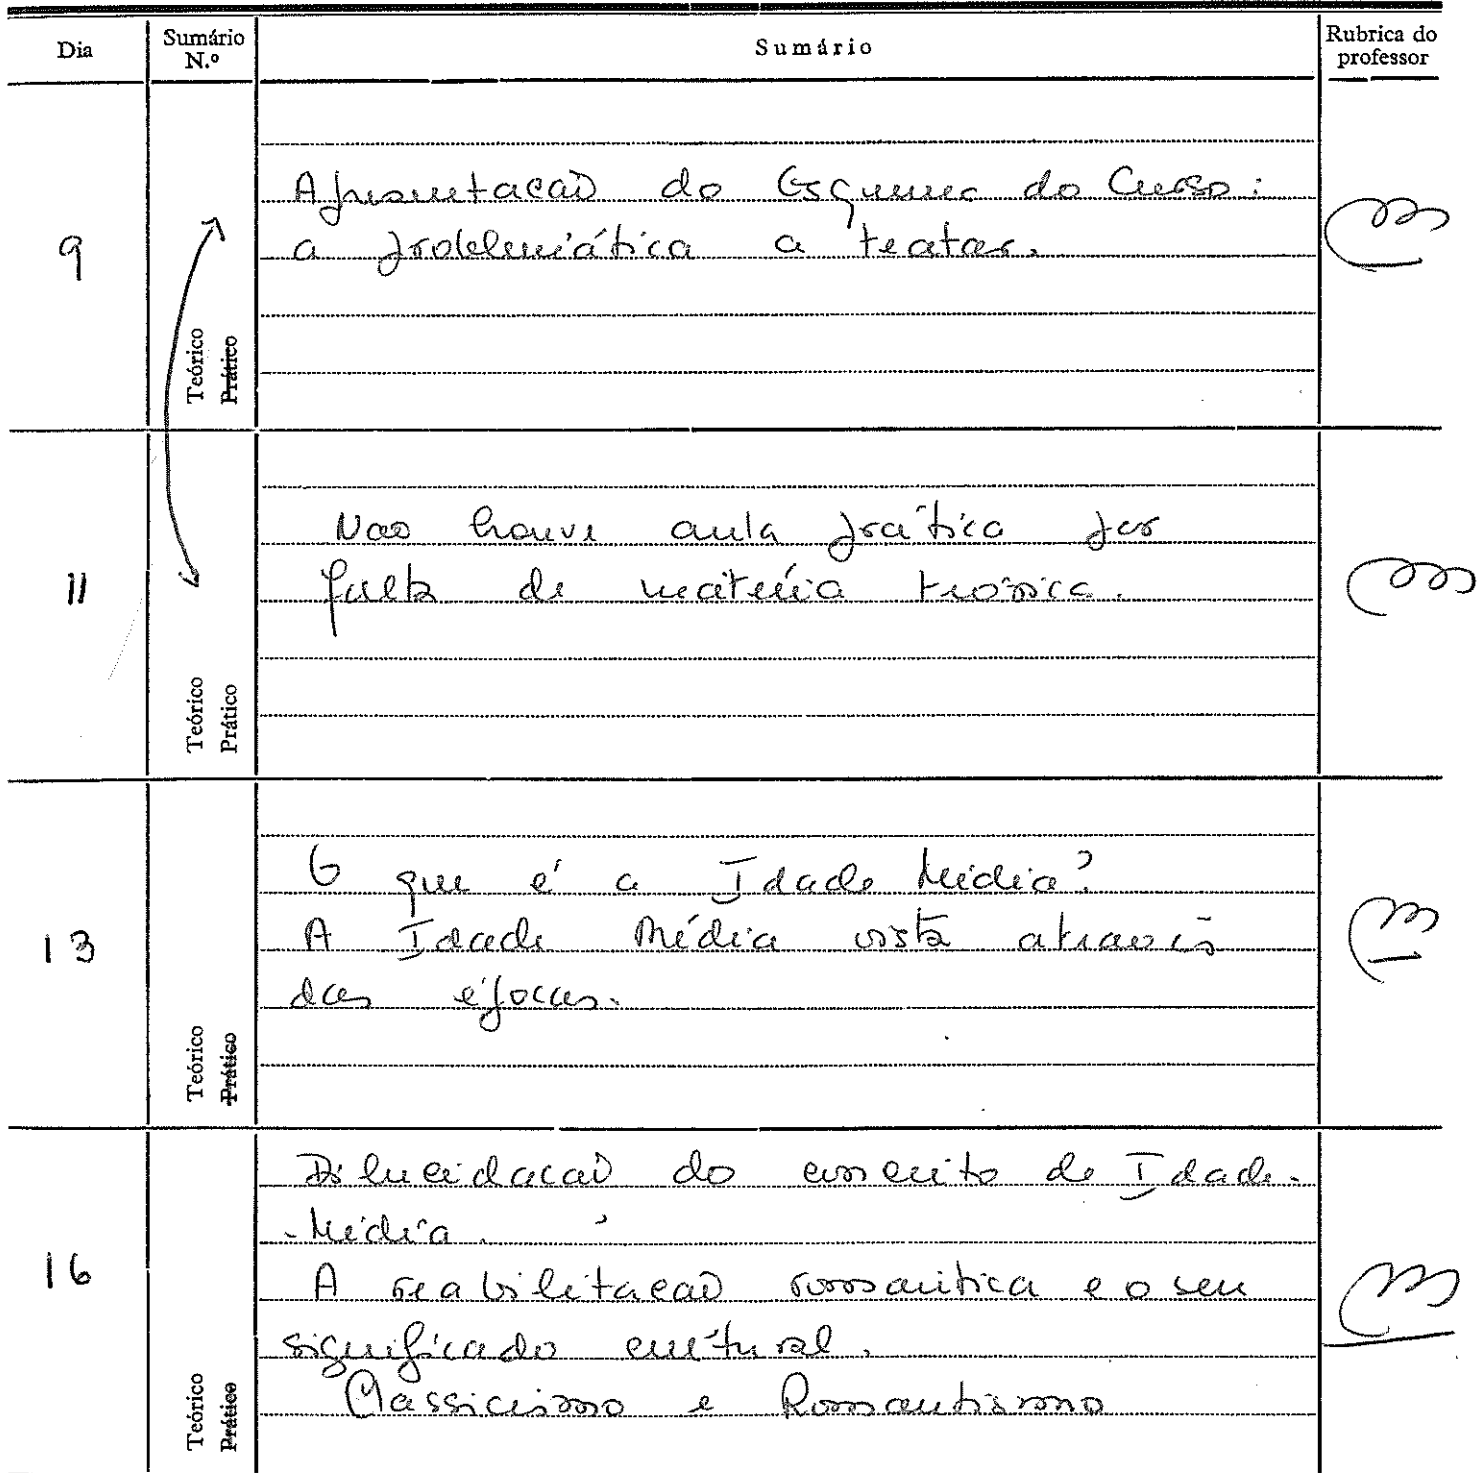 Dia
Sumário N.º
Sumário
Rubrica do professor
9
Teórico
Prático
Apresentacaõ do Esquema do Curso:
a problemática a tratar.
11
Teórico
Prático
Nao houve aula prática por
falta de matéria teórica.
13
Teórico
Prático
O que é a Idade Média?
A Idade Média vista através
das épocas.
16
Teórico
Prático
Dilucidacaõ do conceito de Idade-
-Média.
A reabilitacaõ romantica e o seu
significado cultural.
Classicismo e Romantismo